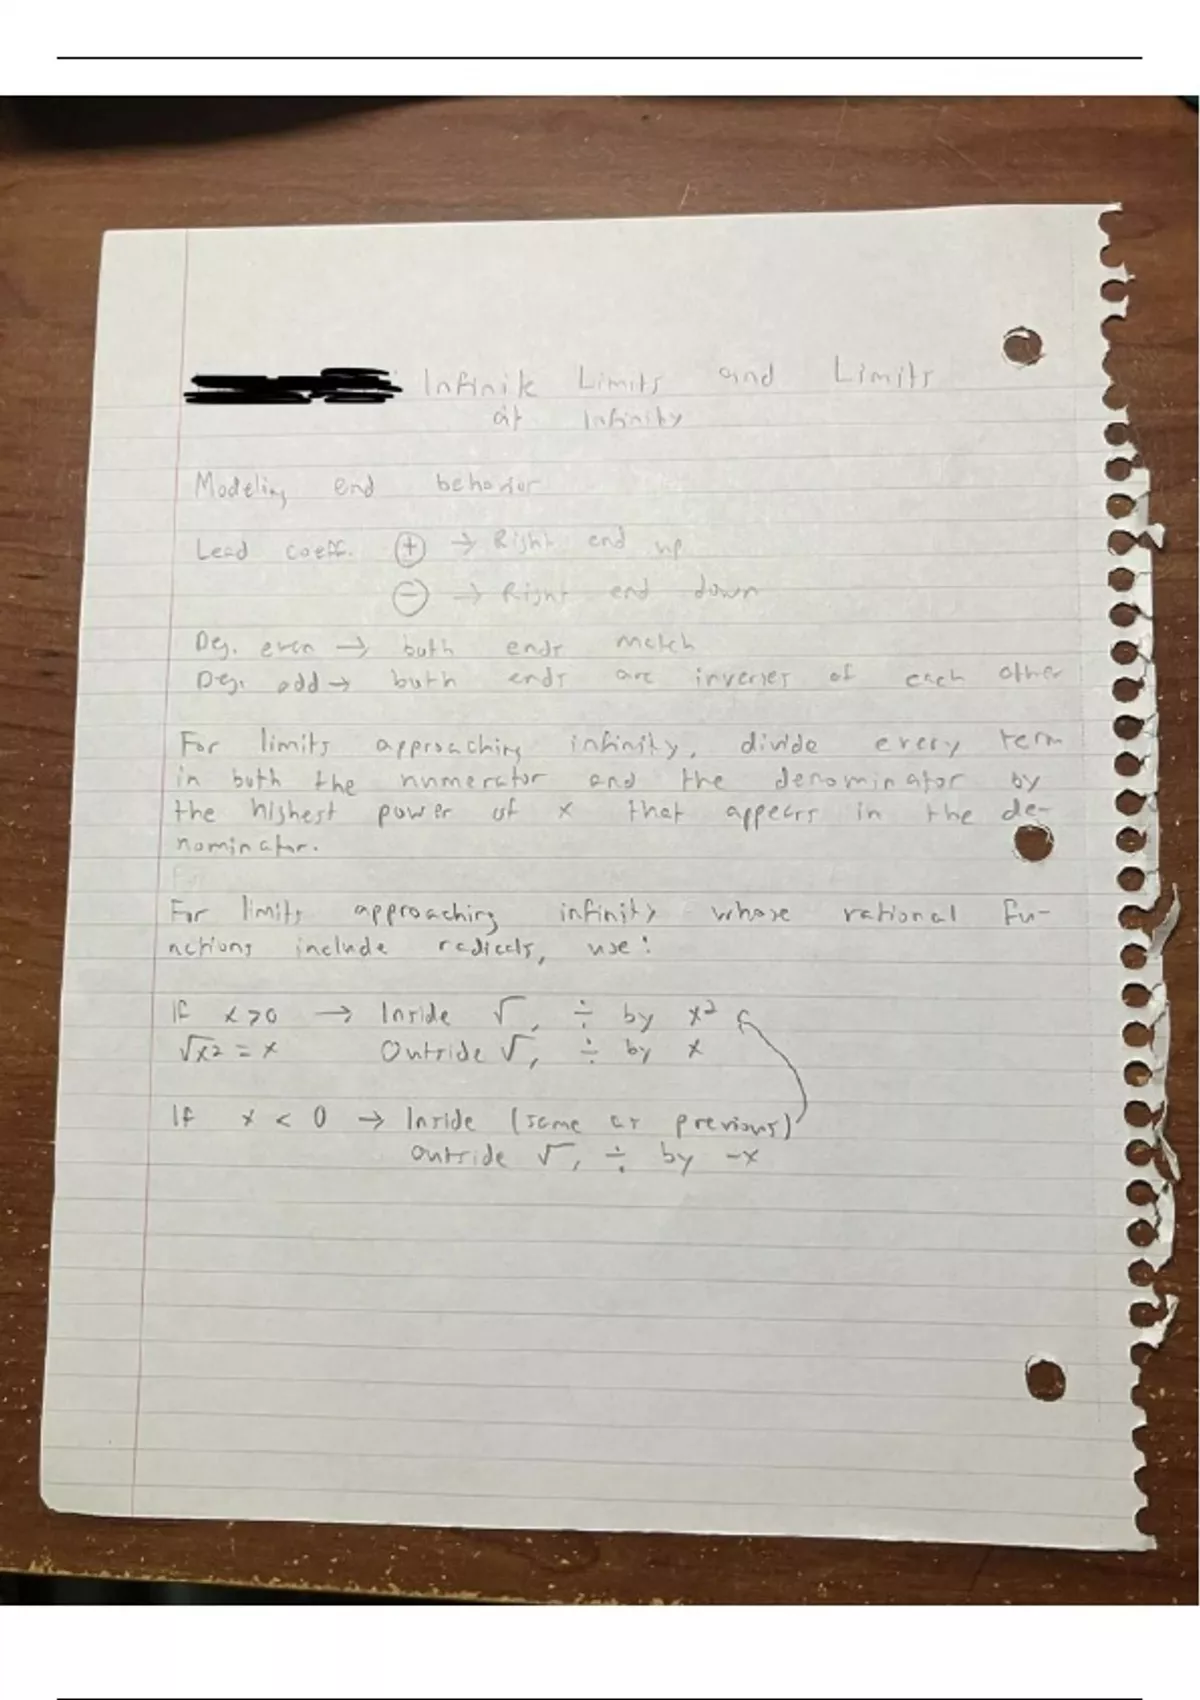 Infinite Limits and Limits
at Infinity
Modeling end behavior
Lead coeff. + → Right end up
− → Right end down
Deg. even → both ends match
Deg. odd → both ends are inverses of each other
For limits approaching infinity, divide every term
in both the numerator and the denominator by
the highest power of x that appears in the de-
nominator.
For limits approaching infinity whose rational fu-
nctions include radicals, use:
If x > 0 → Inside √, ÷ by x²
√x² = x Outside √, ÷ by x
If x < 0 → Inside (same as previous)
Outside √, ÷ by -x